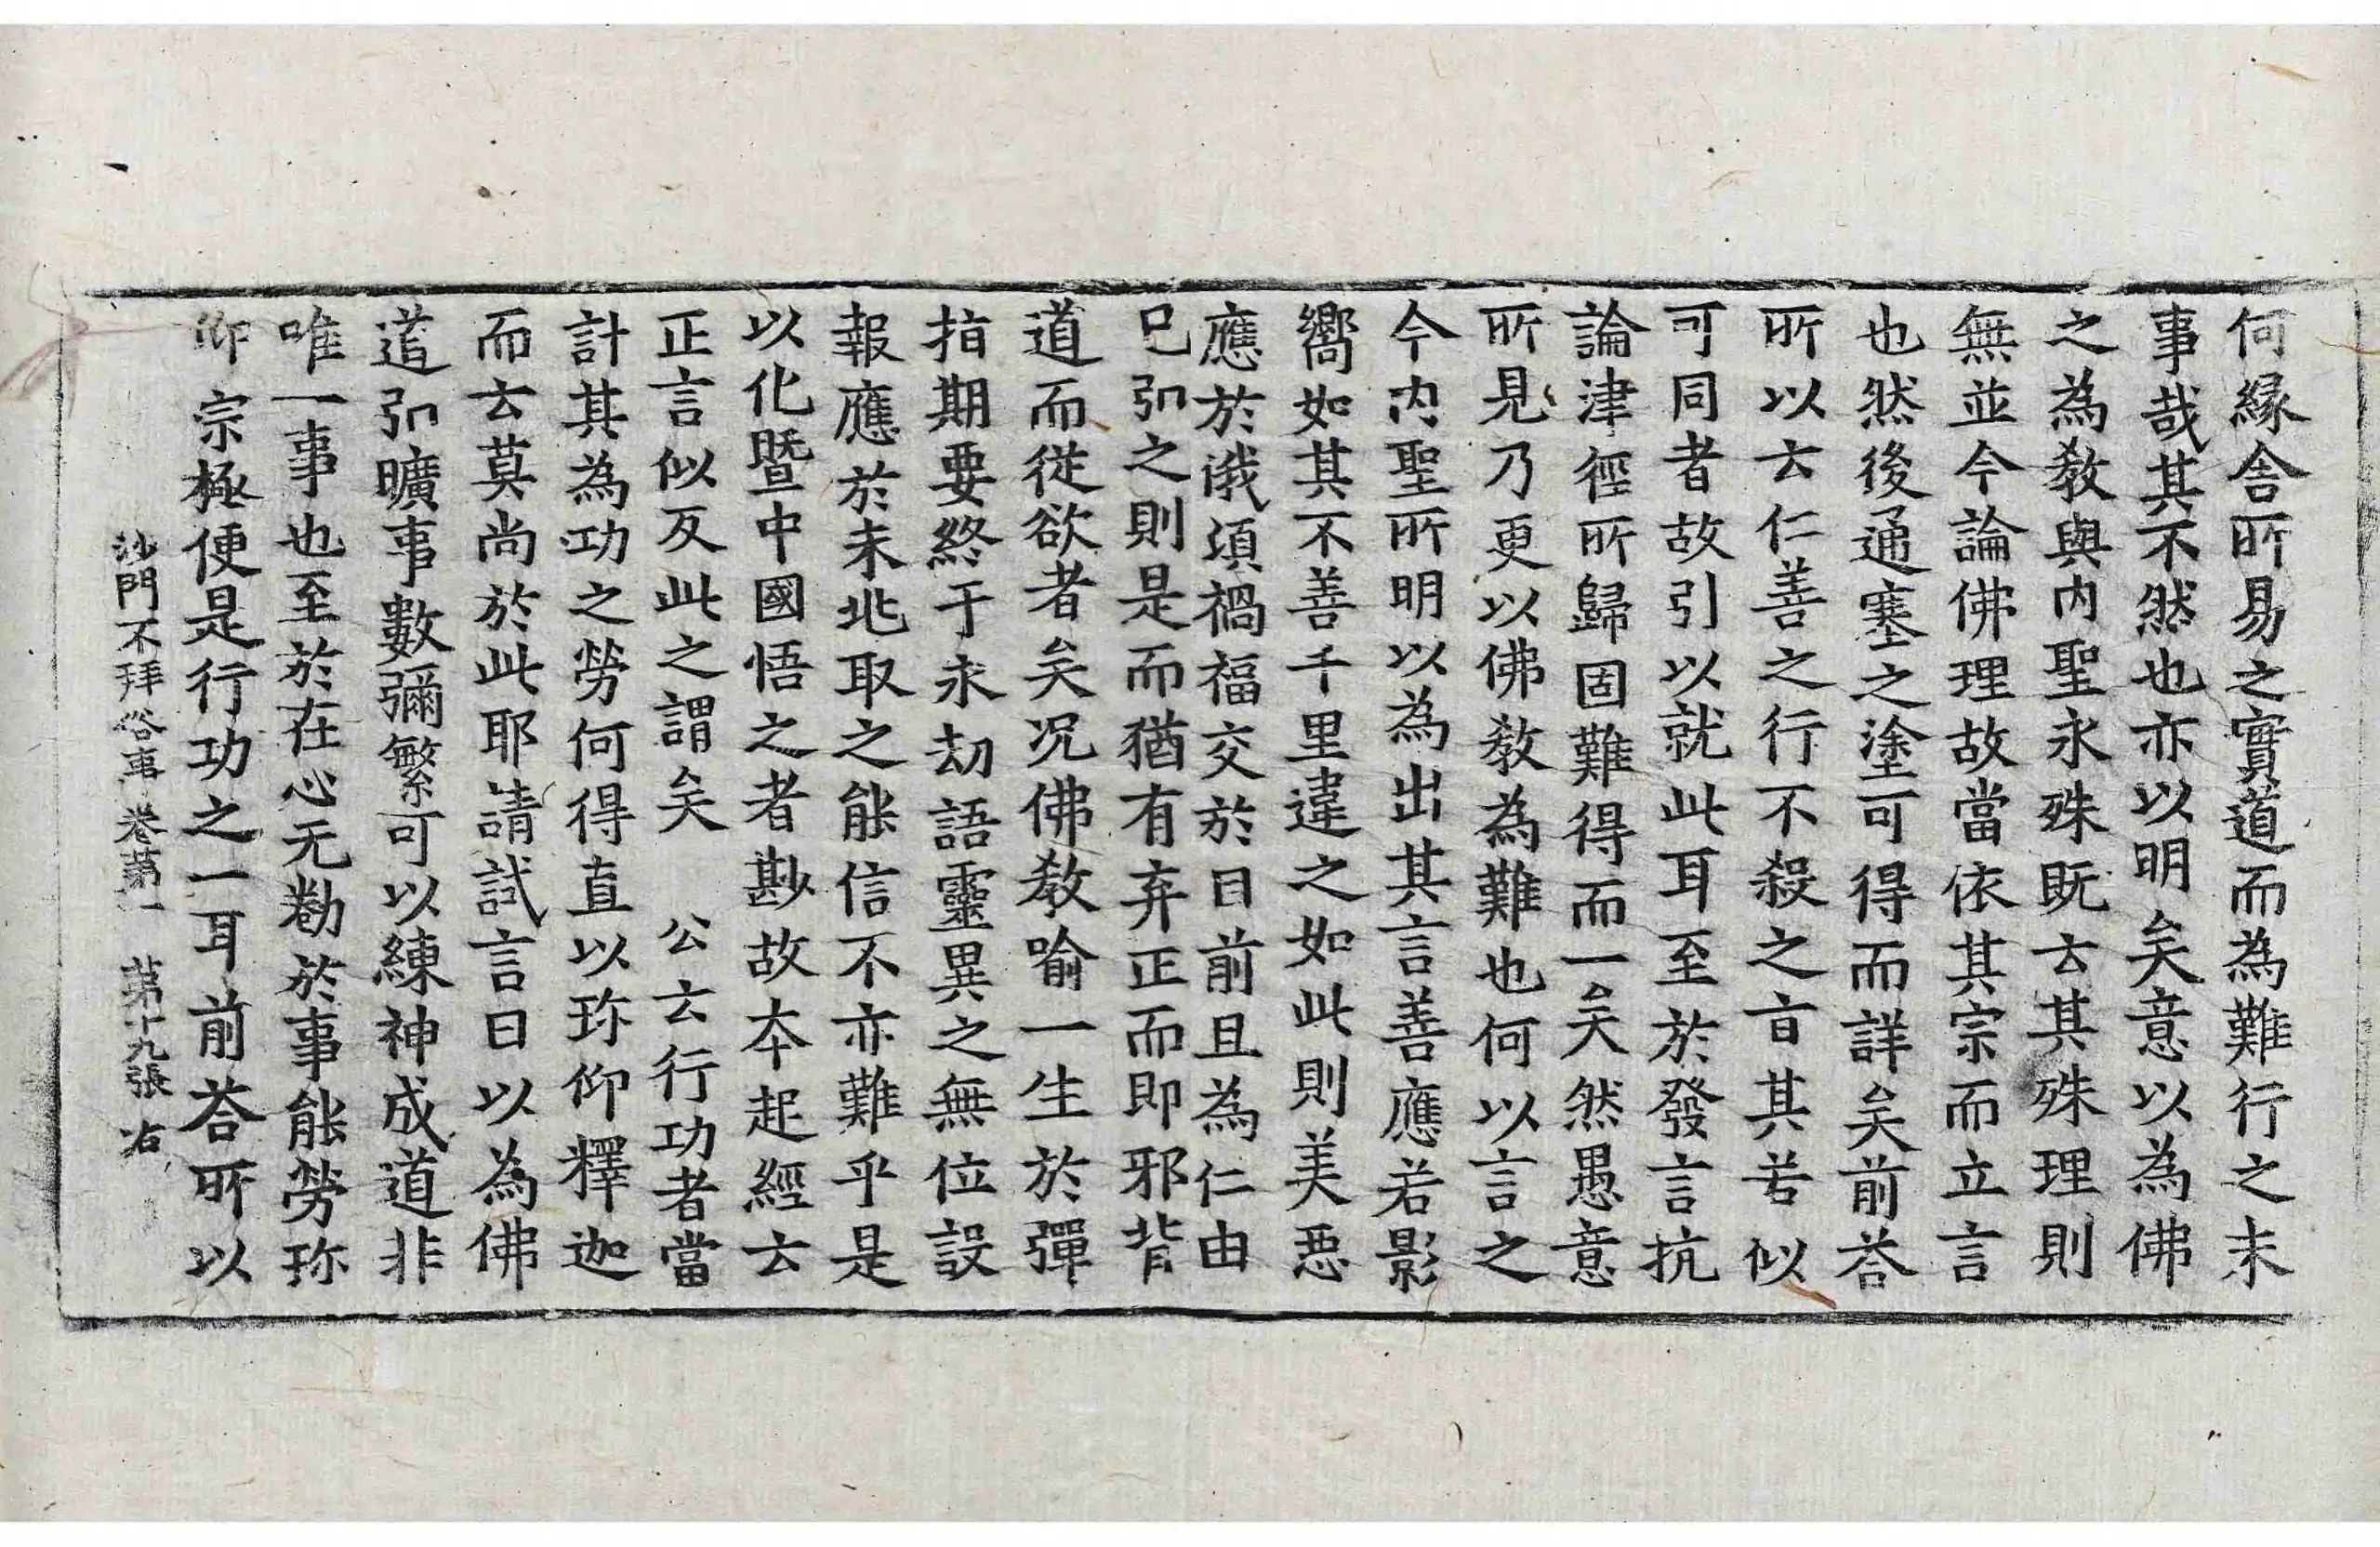 何緣舍所易之實道而為難行之末
事哉其不然也亦以明矣意以為佛
之為教與内聖永殊既云其殊理則
無並今論佛理故當依其宗而立言
也然後通塞之塗可得而詳矣前荅
所以云仁善之行不殺之旨其若似
可同者故引以就此耳至於發言抗
論津徑所歸固難得而一矣然愚意
所見乃更以佛教為難也何以言之
今内聖所明以為出其言善應若影
嚮如其不善千里違之如此則美惡
應於俄頃禍福交於目前且為仁由
已弘之則是而猶有弃正而即邪背
道而從欲者矣况佛教喻一生於彈
指期要終于永劫語靈異之無位設
報應於未兆取之能信不亦難乎是
以化暨中國悟之者尠故本起經云
正言似反此之謂矣 公云行功者當
計其為功之勞何得直以珎仰釋迦
而云莫尚於此耶請試言曰以為佛
道弘曠事數彌繁可以練神成道非
唯一事也至於在心无勌於事能勞珎
仰宗極便是行功之一耳前荅所以
沙門不拜俗事卷第一 第十九張 右